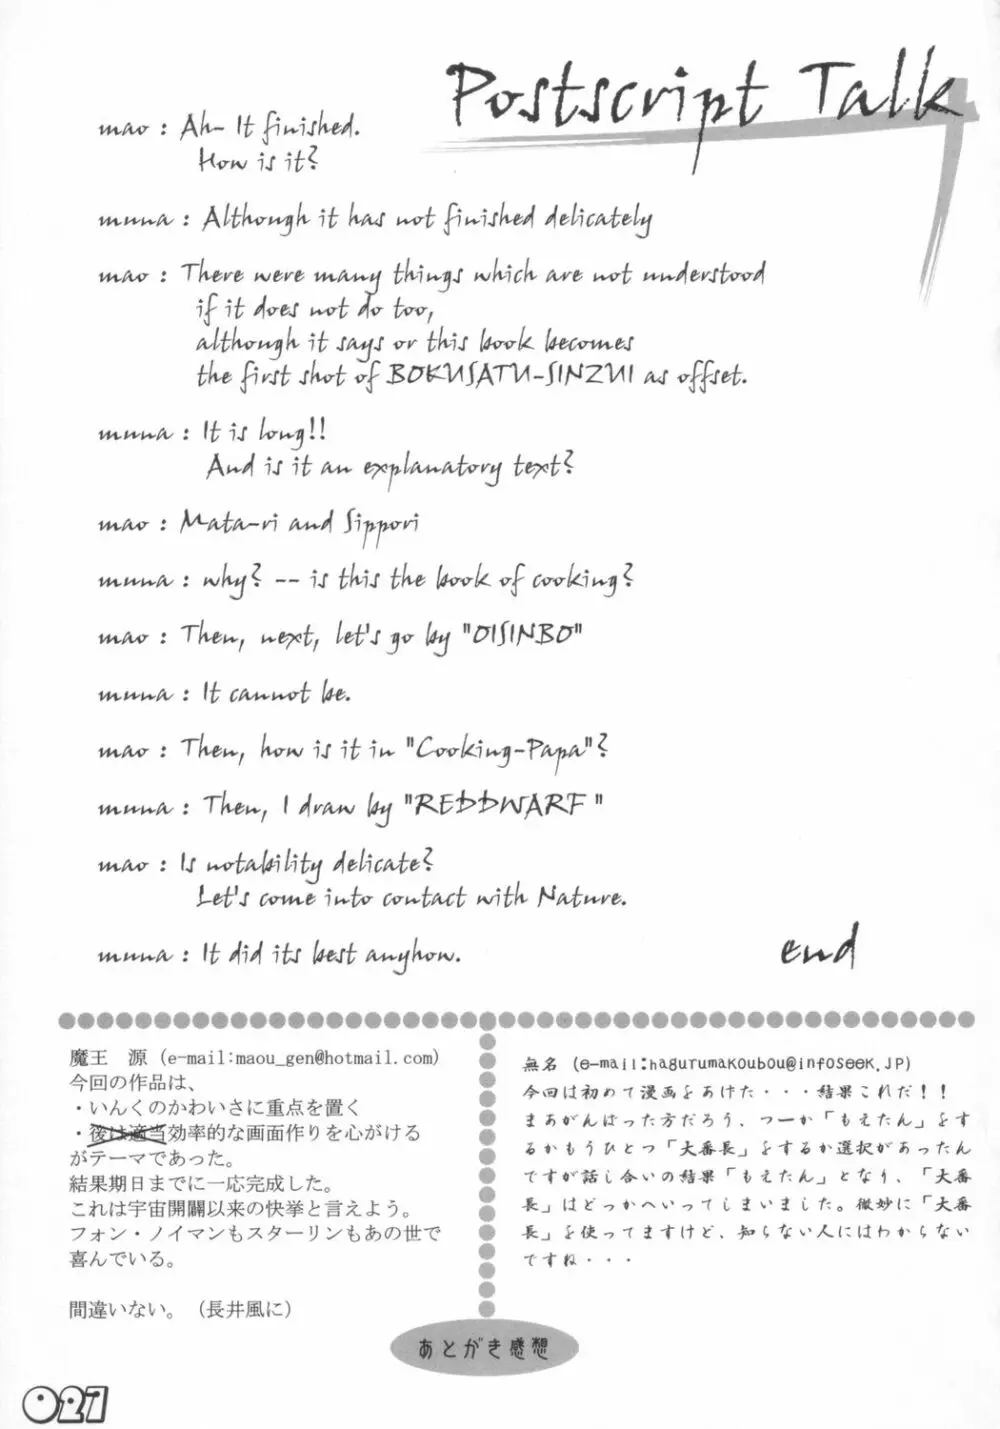 Postscript Talk
mao : Ah- It finished.
How is it?
muna : Although it has not finished delicately
mao : There were many things which are not understood
if it does not do too,
although it says or this book becomes
the first shot of BOKUSATU-SINZUI as offset.
muna : It is long!!
And is it an explanatory text?
mao : Mata-ri and Sippori
muna : why? -- is this the book of cooking?
mao : Then, next, let's go by "OISINBO"
muna : It cannot be.
mao : Then, how is it in "Cooking-Papa"?
muna : Then, I draw by "REDDWARF "
mao : Is notability delicate?
Let's come into contact with Nature.
muna : It did its best anyhow.
end
魔王　源（e-mail:maou_gen@hotmail.com）
今回の作品は、
・いんくのかわいさに重点を置く
・後は適当効率的な画面作りを心がける
がテーマであった。
結果期日までに一応完成した。
これは宇宙開闢以来の快挙と言えよう。
フォン・ノイマンもスターリンもあの世で
喜んでいる。
間違いない。（長井風に）
無名（e-mail:hagurumakoubou@infoseek.jp）
今回は初めて漫画をあけた・・・結果これだ！！
まあがんばった方だろう、つーか「もえたん」をす
るかもうひとつ「大番長」をするか選択があったん
ですが話し合いの結果「もえたん」となり、「大番
長」はどっかへいってしまいました。微妙に「大番
長」を使ってますけど、知らない人にはわからない
ですね・・・
あとがき感想
027